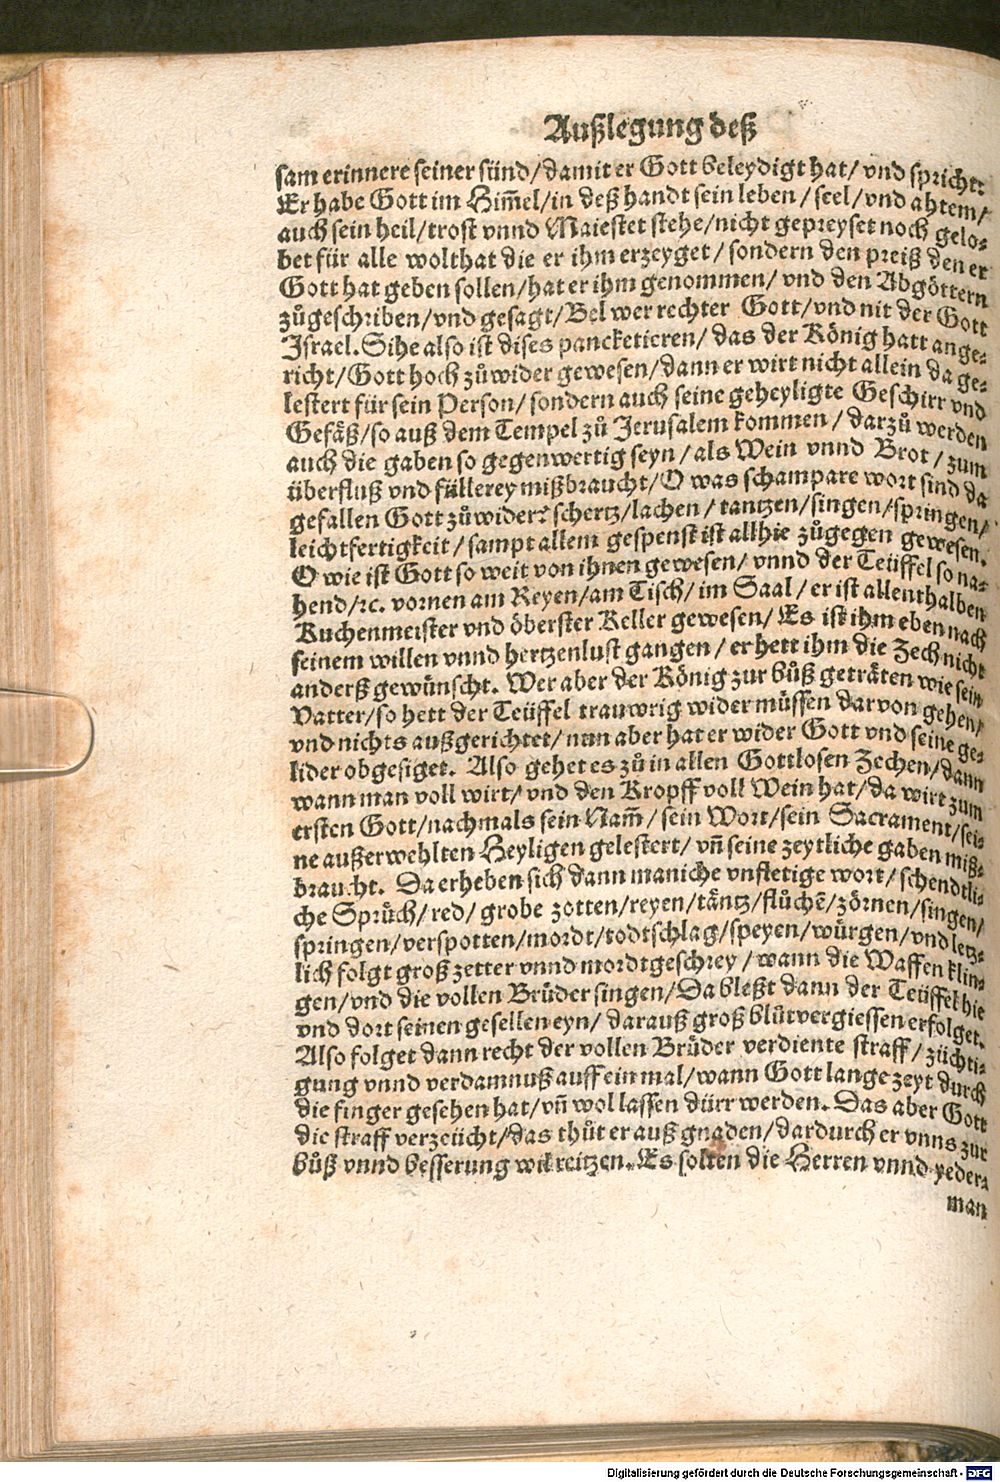 Außlegung deß
sam erinnere seiner sünd/damit er Gott beleydigt hat/vnd spricht:
Er habe Gott im Him̃el/in deß handt sein leben/seel/vnd ahtem/
auch sein heil/trost vnnd Maiestet stehe/nicht gepreyset noch gelo⸗
bet für alle wolthat die er ihm erzeyget/sondern den preiß den er
Gott hat geben sollen/hat er ihm genommen/vnd den Abgöttern
zůgeschriben/vnd gesagt/Bel wer rechter Gott/vnd nit der Gott
Israel. Sihe also ist dises pancketieren/das der König hatt ange⸗
richt/Gott hoch zůwider gewesen/dann er wirt nicht allein da ge⸗
lestert für sein Person/sondern auch seine geheyligte Geschirr vnd
Gefäß/so auß dem Tempel zů Jerusalem kommen/darzů werden
auch die gaben so gegenwertig seyn/als Wein vnnd Brot/zum
überfluß vnd füllerey mißbraucht/O was schampare wort sind da
gefallen Gott zůwider? schertz/lachen/tantzen/singen/springen/
leichtfertigkeit/sampt allem gespenst ist allhie zůgegen gewesen.
O wie ist Gott so weit von ihnen gewesen/vnnd der Teüffel so na⸗
hend/ꝛc. vornen am Reyen/am Tisch/im Saal/er ist allenthalben
Kuchenmeister vnd öberster Keller gewesen/Es ist ihm eben nach
seinem willen vnnd hertzenlust gangen/er hett ihm die Zech nicht
anderß gewünscht. Wer aber der König zur bůß geträten wie sein
Vatter/so hett der Teüffel trauwrig wider müssen darvon gehen/
vnd nichts außgerichtet/nun aber hat er wider Gott vnd seine ge⸗
lider obgesiget. Also gehet es zů in allen Gottlosen Zechen/dann
wann man voll wirt/vnd den Kropff voll Wein hat/da wirt zum
ersten Gott/nachmals sein Nam̃/sein Wort/sein Sacrament/sei⸗
ne außerwehlten Heyligen gelestert/vñ seine zeytliche gaben miß⸗
braucht. Da erheben sich dann maniche vnfletige wort/schendtli⸗
che Sprüch/red/grobe zotten/reyen/täntz/flůchẽ/zörnen/singen/
springen/verspotten/mordt/todtschlag/speyen/würgen/vnd letz⸗
lich folgt groß zetter vnnd mordtgeschrey/wann die Waffen klin⸗
gen/vnd die vollen Brüder singen/Da bleßt dann der Teüffel hie
vnd dort seinen gesellen eyn/darauß groß blůtvergiessen erfolget.
Also folget dann recht der vollen Brüder verdiente straff/züchti⸗
gung vnnd verdamnuß auff ein mal/wann Gott lange zeyt durch
die finger gesehen hat/vñ wol lassen dürr werden. Das aber Gott
die straff verzeücht/das thůt er auß gnaden/dardurch er vnns zur
bůß vnnd besserung wil reitzen. Es solten die Herren vnnd yeder⸗
man
Digitalisierung gefördert durch die Deutsche Forschungsgemeinschaft - DFG